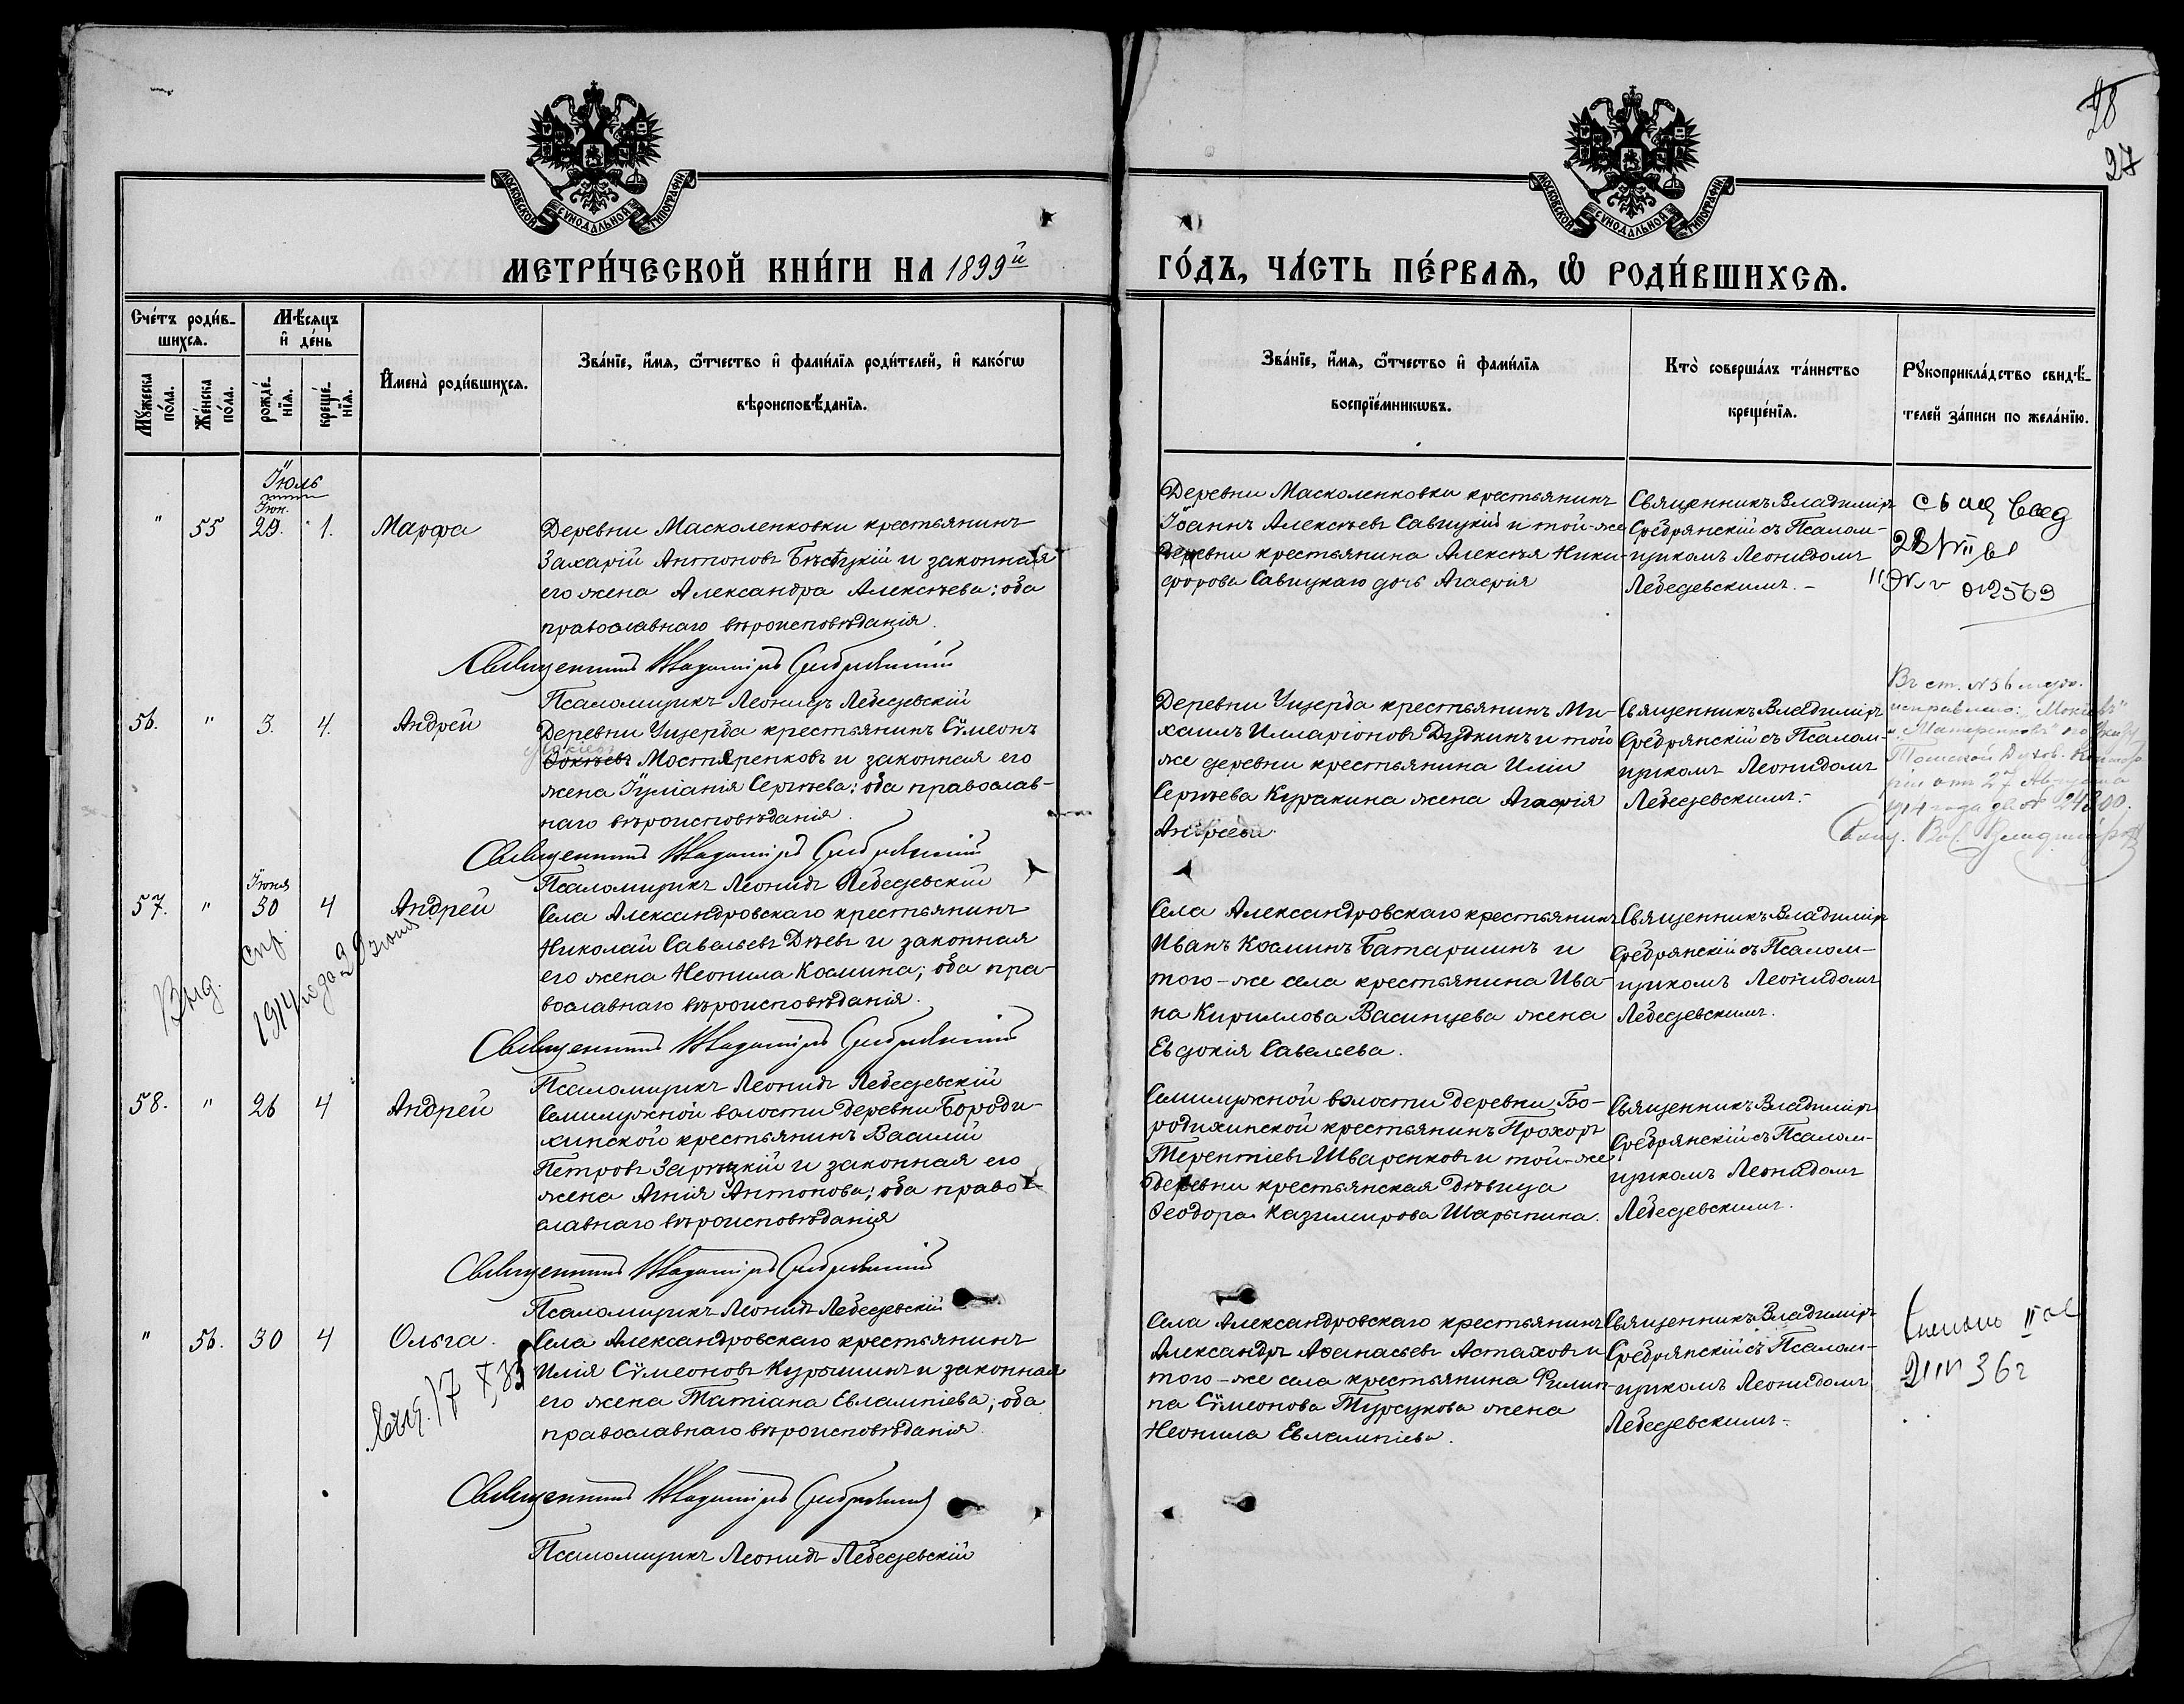 28
27
МОСКОВСКОЙ СѴНОДАЛЬНОЙ ТИПОГРАФІИ
МОСКОВСКОЙ СѴНОДАЛЬНОЙ ТИПОГРАФІИ
МЕТРИ́ЧЕСКОЙ КНИ́ГИ НА 1899й
ГО́ДЪ, ЧА́СТЬ ПЕ́РВАѦ, Ѡ҆ РОДИ́ВШИХСѦ.
Сче́тъ роди́в-
шихсѧ.
Мꙋ́жеска по́ла.
Же́нска по́ла.
Мѣ́сѧцъ
и҆ де́нь
рожде́-
нїѧ.
креще́-
нїѧ.
И҆мена̀ роди́вшихсѧ.
Зва́нїе, и҆́мѧ, ѻ҆́тчество и҆ фами́лїѧ роди́телей, и҆ како́гѡ
вѣроисповѣ́данїѧ.
Зва́нїе, и҆́мѧ, ѻ҆́тчество и҆ фами́лїѧ
воспрїе́мникѡвъ.
Кто̀ соверша́лъ та́инство
креще́нїѧ.
Рꙋкоприкла́дство свидѣ́-
телей за́писи по жела́нїю.
Іюль
Іюн.
" 55 29. 1. Марфа
Деревни Масколенковки крестьянинъ
Захарій Антоновъ Бѣсѣцкій и законная
его жена Александра Алексѣева; оба
православнаго вѣроисповѣданія.
Священникъ Владиміръ Сребрянскій
Псаломщикъ Леонидъ Лебедевскій
Деревни Масколенковки крестьянинъ
Іоаннъ Алексѣевъ Савицкій и той-же
деревни крестьянина Алексѣя Ники-
форова Савицкаго дочь Агафія
Священникъ Владиміръ
Сребрянскій съ Псалом-
щикомъ Леонидомъ
Лебедевскимъ.-
2569
56. " 3. 4. Андрей
Деревни Ущерба крестьянинъ Сѵмеонъ
Мокіевъ
Фокѣевъ Мостяренковъ и законная его
жена Іуліанія Сергѣева; оба православ-
наго вѣроисповѣданія.
Священникъ Владиміръ Сребрянскій
Псаломщикъ Леонидъ Лебедевскій
Деревни Ущерба крестьянинъ Ми-
хаилъ Илларіоновъ Дудкинъ и той
же деревни крестьянина Иліи
Сергѣева Куракина жена Агафія
Андреева.
Священникъ Владиміръ
Сребрянскій съ Псалом-
щикомъ Леонидомъ
Лебедевскимъ.-
Въ ст. №56 муж.
исправлено: "Мокіевъ"
по Указу
Томской Духов. Консисто-
ріи отъ 27 Августа
1914 года за № 24300.
Свящ.
Іюня
57. " 30 4 Андрей
Села Александровскаго крестьянинъ
Николай Савельевъ Дѣевъ и законная
его жена Неонила Космина; оба пра-
вославнаго вѣроисповѣданія.
Выд. спр.
1914 года 20 іюня
Священникъ Владиміръ Сребрянскій
Псаломщикъ Леонидъ Лебедевскій
Села Александровскаго крестьянинъ
Иванъ Косминъ Батаршинъ и
того-же села крестьянина Ива-
на Кириллова Васинцева жена
Евдокія Савельева.
Священникъ Владиміръ
Сребрянскій съ Псалом-
щикомъ Леонидомъ
Лебедевскимъ.
58. " 26 4 Андрей
Семилужной волости деревни Бороди-
хинской крестьянинъ Василій
Петровъ Зарѣцкій и законная его
жена Агнія Антонова; оба право-
славнаго вѣроисповѣданія
Священникъ Владиміръ Сребрянскій
Псаломщикъ Леонидъ Лебедевскій
Семилужной волости деревни Бо-
родихинской крестьянинъ Прохоръ
Терентіевъ Шваренковъ и той-же
деревни крестьянская дѣвица
Ѳеодора Казимирова Шарыпина.
Священникъ Владиміръ
Сребрянскій съ Псалом-
щикомъ Леонидомъ
Лебедевскимъ.
" 56. 30 4 Ольга.
Села Александровскаго крестьянинъ
Илія Сѵмеоновъ Курышинъ и законная
его жена Татіана Евлампіева; оба
православнаго вѣроисповѣданія.
Священникъ Владиміръ Сребрянскій
Псаломщикъ Леонидъ Лебедевскій
Села Александровскаго крестьянинъ
Александръ Аѳанасьевъ Астаховъ и
того-же села крестьянина Филип-
па Сѵмеонова Турсукова жена
Неонила Евлампіева.
Священникъ Владиміръ
Сребрянскій съ Псалом-
щикомъ Леонидомъ
Лебедевскимъ.-
36г